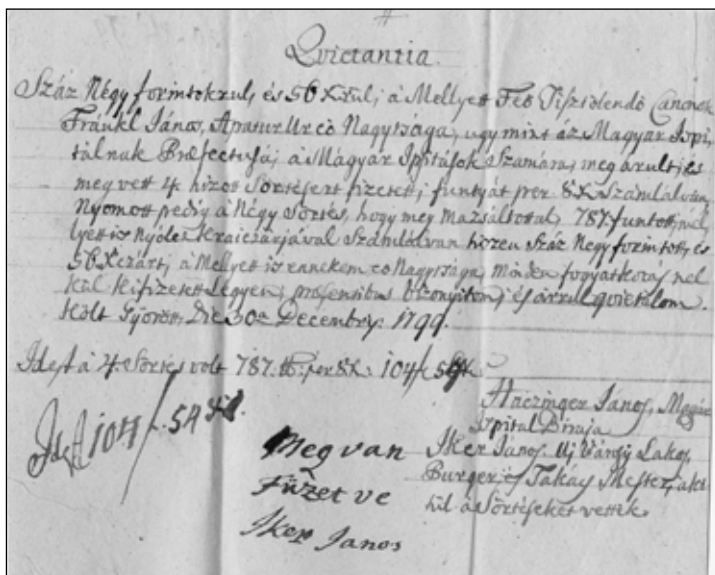 Qvietantia.
Száz Négy forintokrul, és 56 Xrul, á Mellyett Feő Tisztelendő Canonok
Fránkl János, Apatur Ur eő Nagysága, ugy mint áz Magyar Ispi,
tálnak Præfectussa, á Magyar Ispitások Számára, meg árult, és
meg vett 4. hizott Sörtésért fizetett, funtyát per 8X Számlálván,
Nyomott pedig á Négy Sörtés, hogy meg mázsáltatott, 787. funtott, mel,
lyett is Nyólcz Kraiczárjával Számlálván hiszen Száz Negy forintott, és
56 Xczárt, á Mellyett is ennekem eo Nagysága, minden fogyatkozás nél
kül kifizetett légyen, præsentibus bizonyitom, és árrul quietálom.
Költ Győrött, Die 30a Decembris. 1799.
Idest á 4. Sörtés volt 787. per 8X: 104/ 56X
Idest 104/. 54 X.
Haczinger János, Magiar
Ispitál Biraja
Iker János. Uj Várossy Lakos,
Burger, és Takács Mester, aki
túl á Sörtéseket vették.
Meg van
Fizet ve
Iker Janos